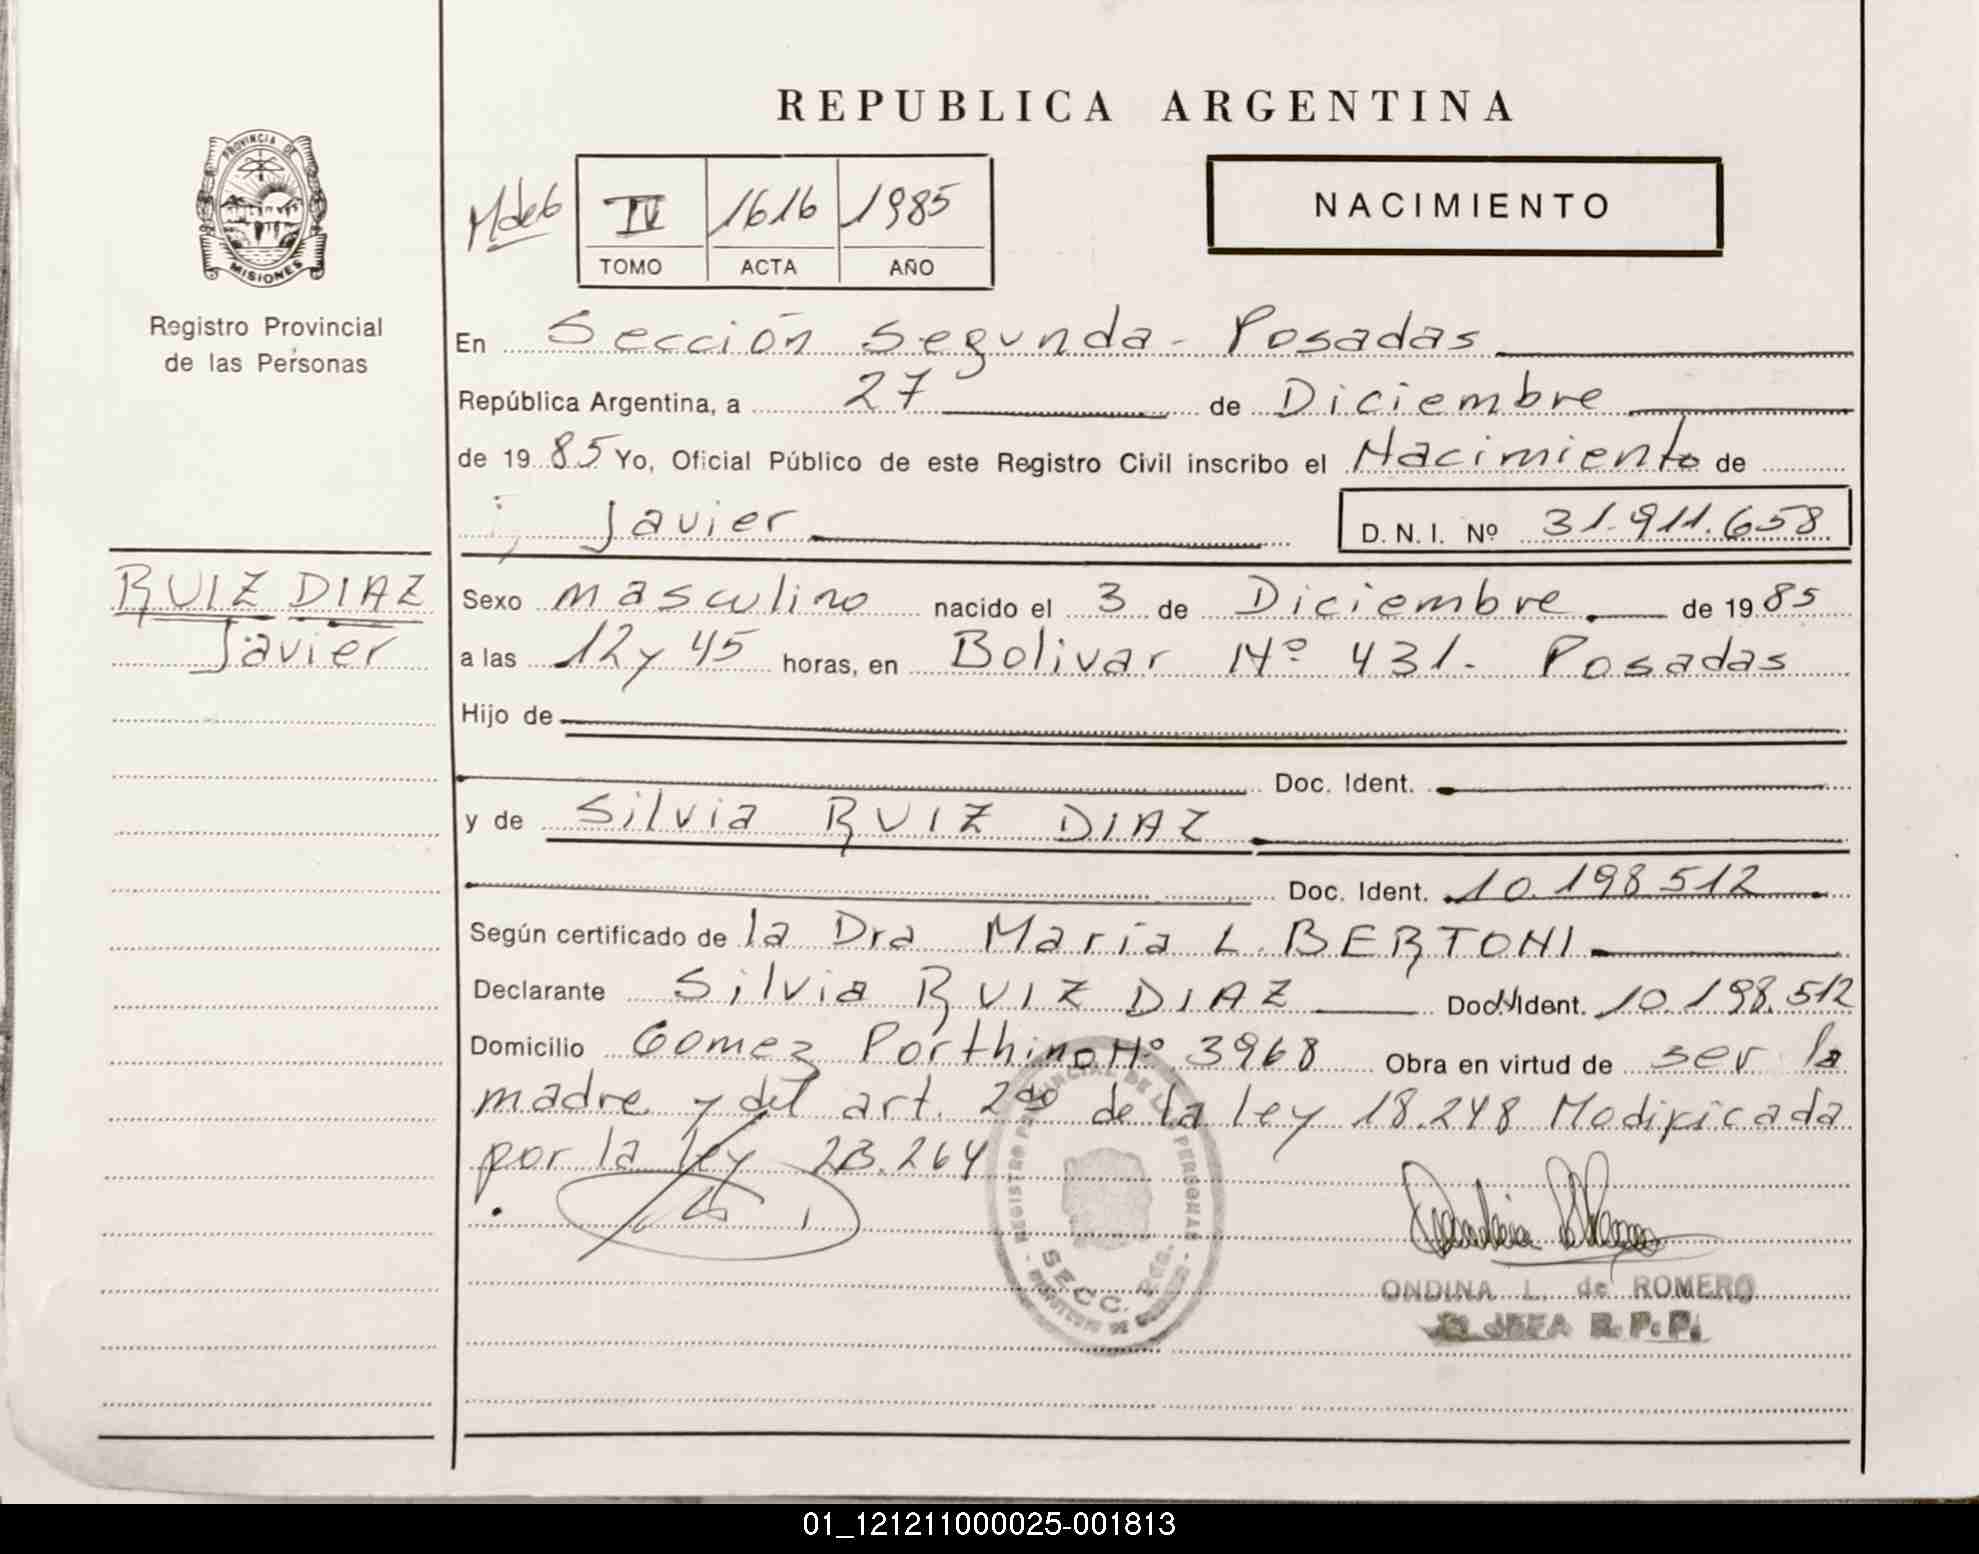 REPUBLICA ARGENTINA
PROVINCIA DE
MISIONES
Registro Provincial
de las Personas
IV 1616 1985
TOMO ACTA AÑO
NACIMIENTO
En Sección Segunda - Posadas
República Argentina, a 27 de Diciembre
de 1985 Yo, Oficial Público de este Registro Civil inscribo el Nacimiento de
Javier D.N.I. Nº 31.911.658
RUIZ DIAZ
Javier
Sexo masculino nacido el 3 de Diciembre de 1985
a las 12 y 45 horas, en Bolivar Nº 431. Posadas
Hijo de
Doc. Ident.
y de Silvia RUIZ DIAZ
Doc. Ident. 10.198.512
Según certificado de la Dra Maria L. BERTONI
Declarante Silvia RUIZ DIAZ Doc. Ident. 10.198.512
Domicilio Gomez Porthino Nº 3968 Obra en virtud de ser la
madre y del art. 2do de la ley 18.248 Modificada
por la ley 23.264
REGISTRO PROVINCIAL DE LAS PERSONAS
SECC. 2da.
ONDINA L. de ROMERO
JEFA R.P.P.
01_121211000025-001813